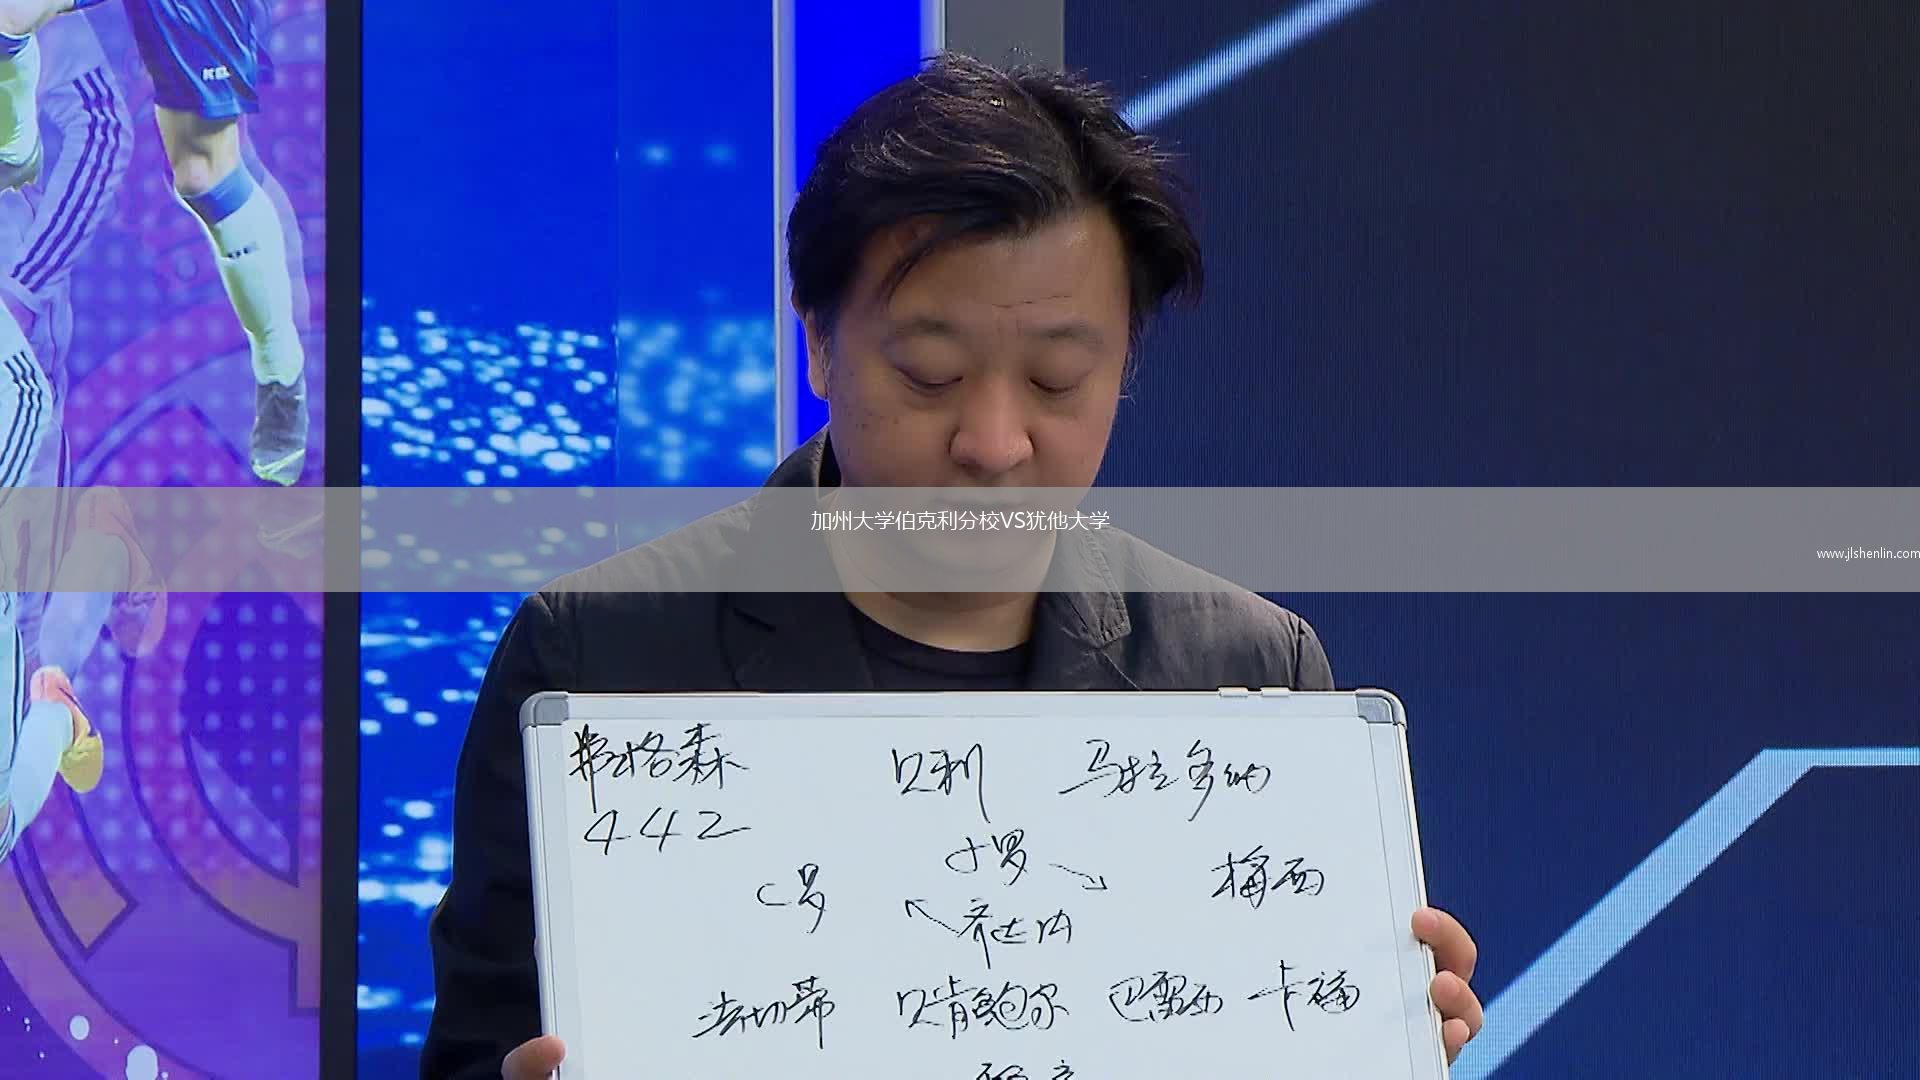 加州大学伯克利分校VS犹他大学
www.jlshenlin.com
弗格森 贝利 马拉多纳
442
小罗
C罗 梅西
齐达内
法切蒂 贝肯鲍尔 巴雷西 卡福